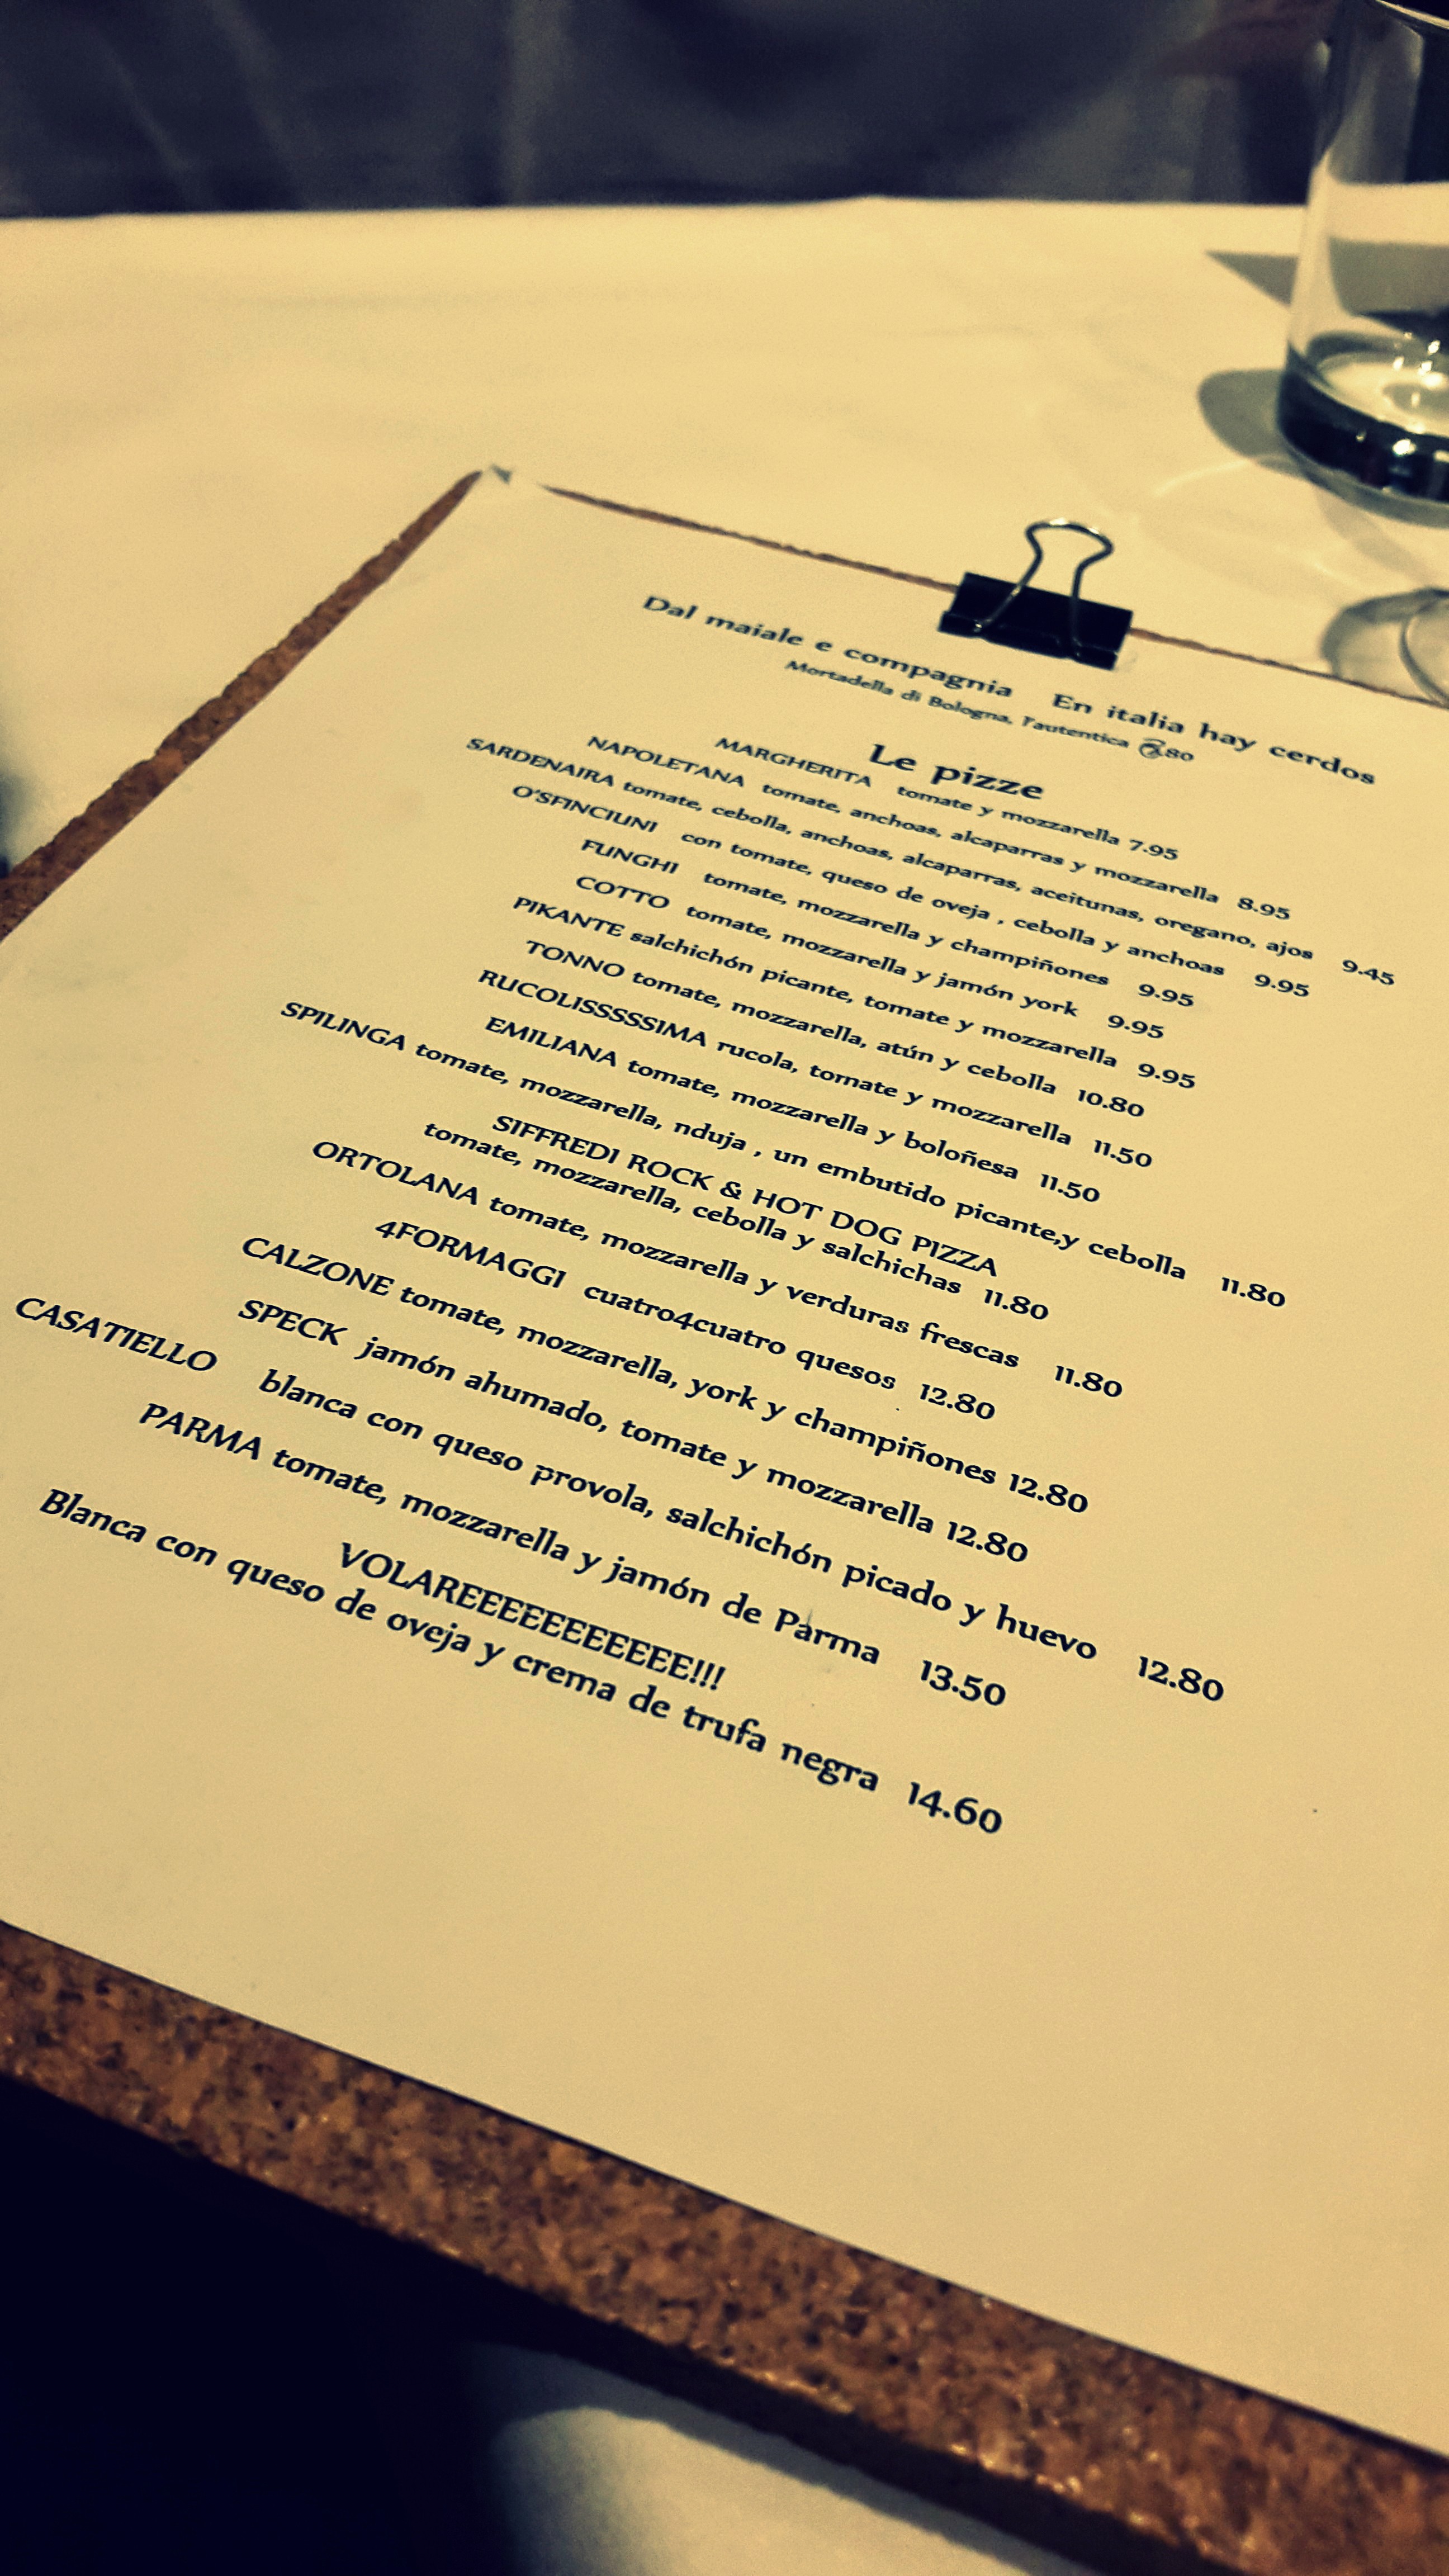 Dal maiale e compagnia En italia hay cerdos
Mortadella di Bologna, l'autentica .80
Le pizze
MARGHERITA tomate y mozzarella 7.95
NAPOLETANA tomate, anchoas, alcaparras y mozzarella 8.95
SARDENAIRA tomate, cebolla, anchoas, alcaparras, aceitunas, oregano, ajos 9.45
O'SFINCIUNI con tomate, queso de oveja , cebolla y anchoas 9.95
FUNGHI tomate, mozzarella y champiñones 9.95
COTTO tomate, mozzarella y jamón york 9.95
PIKANTE salchichón picante, tomate y mozzarella 9.95
TONNO tomate, mozzarella, atún y cebolla 10.80
RUCOLISSSSSIMA rucola, tomate y mozzarella 11.50
EMILIANA tomate, mozzarella y boloñesa 11.50
SPILINGA tomate, mozzarella, nduja , un embutido picante,y cebolla 11.80
SIFFREDI ROCK & HOT DOG PIZZA
tomate, mozzarella, cebolla y salchichas 11.80
ORTOLANA tomate, mozzarella y verduras frescas 11.80
4FORMAGGI cuatro4cuatro quesos 12.80
CALZONE tomate, mozzarella, york y champiñones 12.80
SPECK jamón ahumado, tomate y mozzarella 12.80
CASATIELLO blanca con queso provola, salchichón picado y huevo 12.80
PARMA tomate, mozzarella y jamón de Parma 13.50
VOLAREEEEEEEEEEEE!!!
Blanca con queso de oveja y crema de trufa negra 14.60